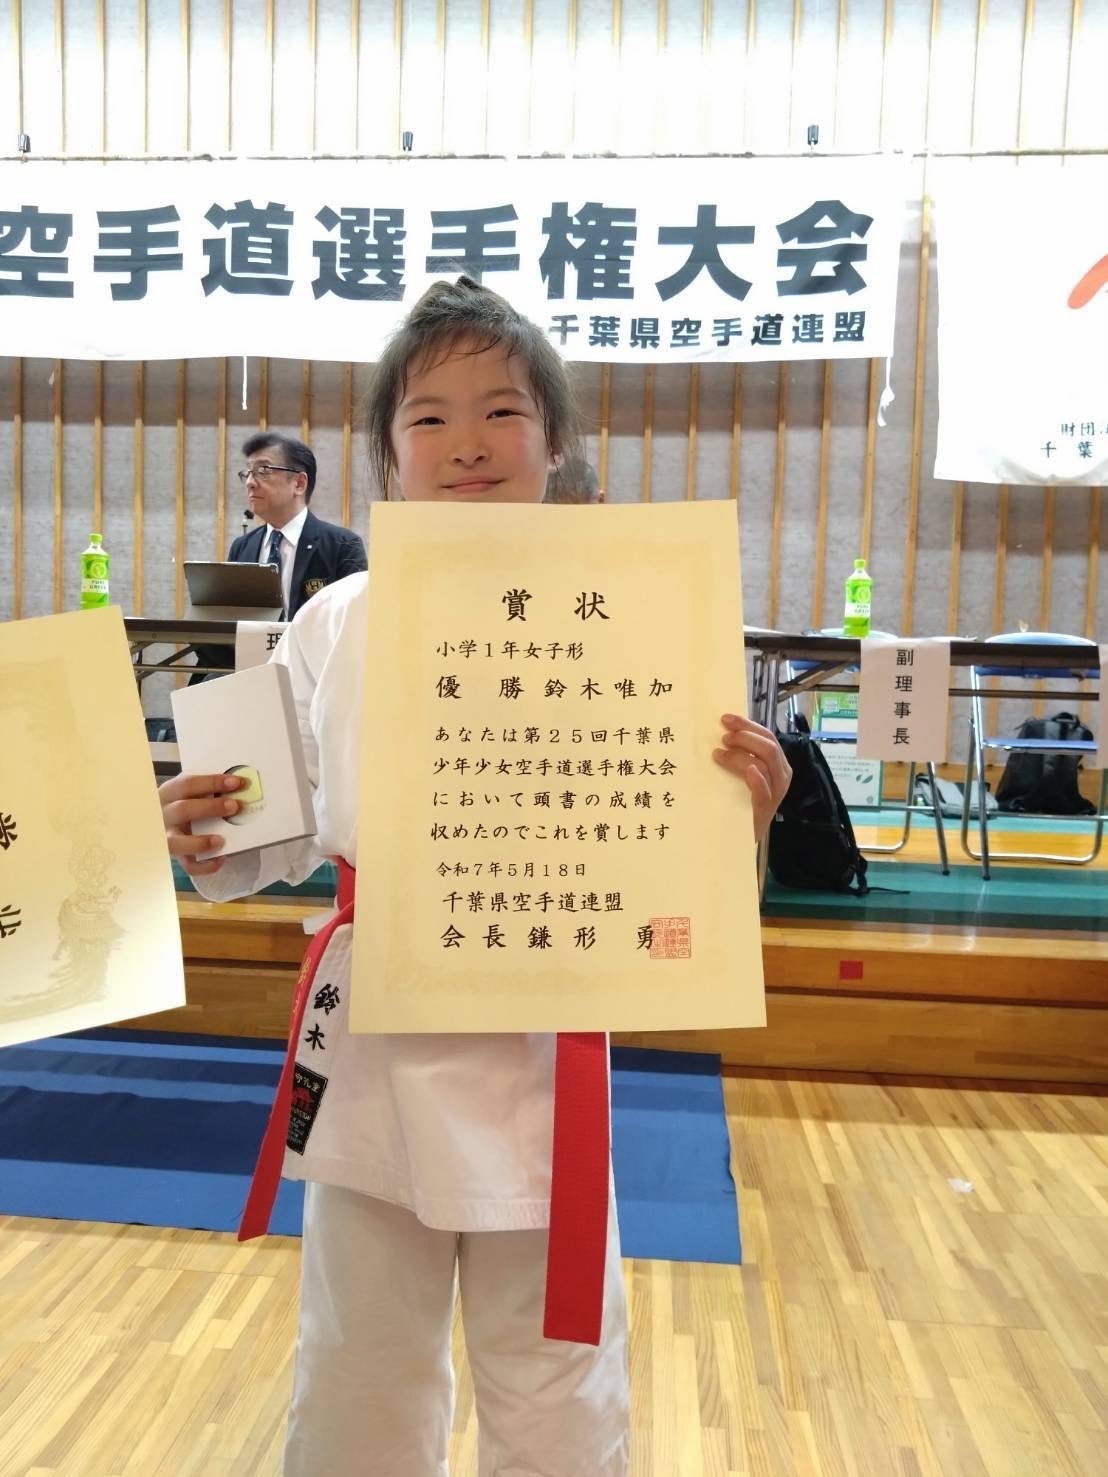 空手道選手権大会
千葉県空手道連盟
財団法
千葉
賞状
小学1年女子形
優 勝 鈴木唯加
あなたは第25回千葉県
少年少女空手道選手権大会
において頭書の成績を
収めたのでこれを賞します
令和7年5月18日
千葉県空手道連盟
会長 鎌形 勇
副理事長
理
賞状
鈴木